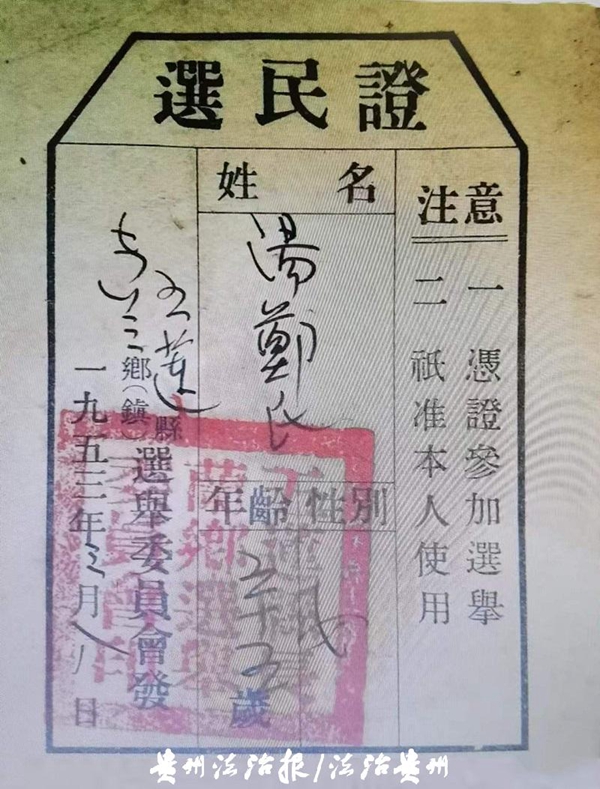 選民證
注意
一 憑證參加選舉
二 祇准本人使用
姓名
湯鄭氏
性別
女
年齡
歲
五蓮縣
鄉(鎮)選舉委員會發
一九五三年三月八日
貴州法治報/法治貴州